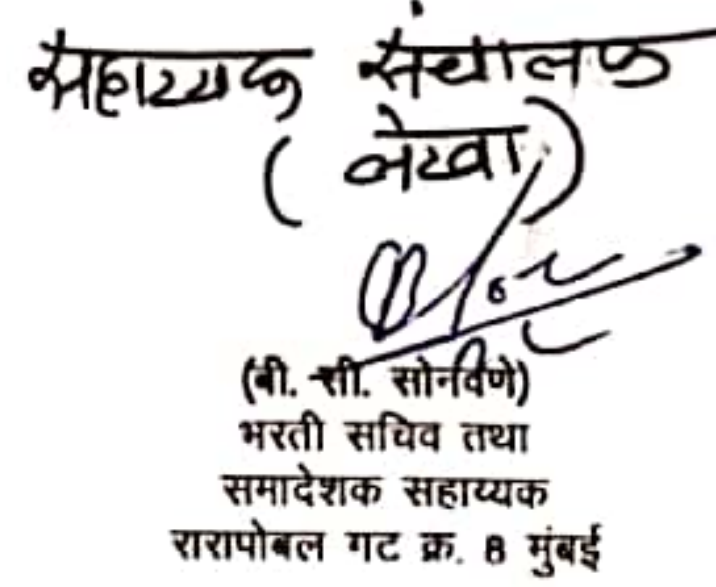 सहाय्यक संचालक
(लेखा)
(बी. सी. सोनविणे)
भरती सचिव तथा
समादेशक सहाय्यक
रारापोबल गट क्र. 8 मुंबई